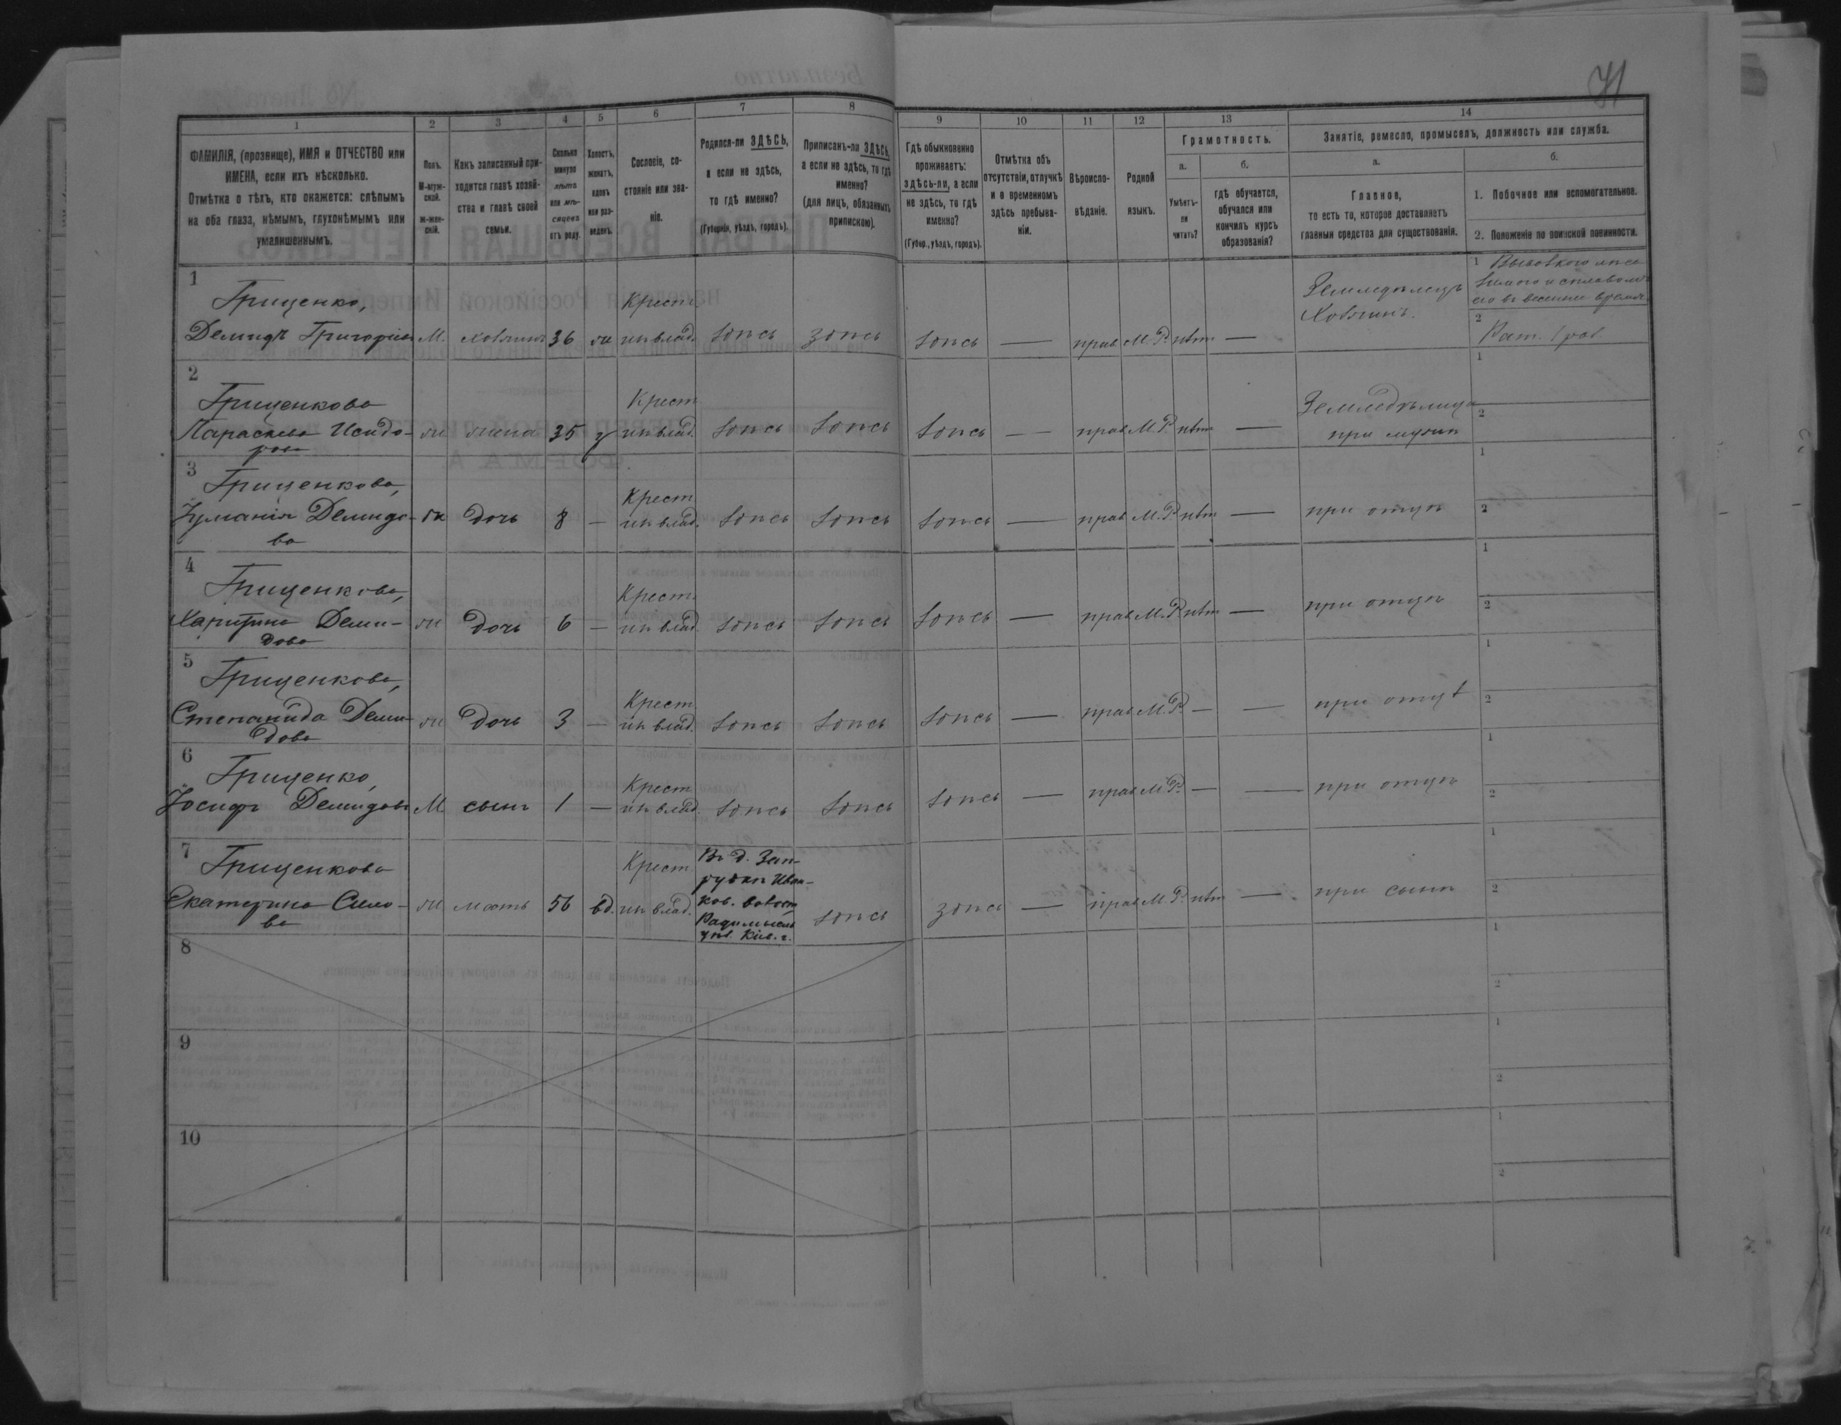 71
1 2 3 4 5 6 7 8 9 10 11 12 13 14
ФАМИЛІЯ, (прозвище), ИМЯ и ОТЧЕСТВО или
ИМЕНА, если ихъ нѣсколько.
Отмѣтка о тѣхъ, кто окажется: слѣпымъ
на оба глаза, нѣмымъ, глухонѣмымъ или
умалишеннымъ.
Полъ.
М-муж-
ской.
Ж-жен-
скій.
Какъ записанный при-
ходится главѣ хозяй-
ства и главѣ своей
семьи.
Сколько
минуло
лѣтъ
или мѣ-
сяцевъ
отъ роду.
Холостъ,
женатъ,
вдовъ
или раз-
веденъ.
Сословіе, со-
стояніе или зва-
ніе.
Родился-ли ЗДѢСЬ,
а если не здѣсь,
то гдѣ именно?
(Губернія, уѣздъ, городъ).
Приписанъ-ли ЗДѢСЬ,
а если не здѣсь, то гдѣ
именно?
(для лицъ, обязанныхъ
припискою).
Гдѣ обыкновенно
проживаетъ:
здѣсь-ли, а если
не здѣсь, то гдѣ
именно?
(Губер., уѣздъ, городъ).
Отмѣтка объ
отсутствіи, отлучкѣ
и о временномъ
здѣсь пребыва-
ніи.
Вѣроиспо-
вѣданіе.
Родной
языкъ.
Грамотность.
а.
Умѣетъ-
ли
читать?
б.
гдѣ обучается,
обучался или
кончилъ курсъ
образованія?
Занятіе, ремесло, промыселъ, должность или служба.
а.
Главное,
то есть то, которое доставляетъ
главныя средства для существованія.
б.
1. Побочное или вспомогательное.
2. Положеніе по воинской повинности.
1
Гриценко,
Демидъ Григоріевъ М. хозяинъ 36 ж Крест. ин влад. здѣсь здѣсь здѣсь — прав М.Р. нѣт —
Земледѣлецъ
Хозяинъ.
1
2
Рат. 1 раз.
2
Гриценкова
Параскева Исидо-
рова ж жена 35 з Крест ин влад. здѣсь здѣсь здѣсь — прав М.Р. нѣт —
Земледѣлица
при мужѣ
1
2
3
Гриценкова,
Іуліанія Демидо-
ва ж дочь 8 — Крест. ин влад. здѣсь здѣсь здѣсь — прав М.Р. нѣт — при отцѣ
1
2
4
Гриценкова,
Харитина Деми-
дова ж дочь 6 — Крест. ин влад здѣсь здѣсь здѣсь — прав М.Р. нѣт — при отцѣ
1
2
5
Гриценкова,
Степанида Деми-
дова ж дочь 3 — Крест. ин влад. здѣсь здѣсь здѣсь — прав М.Р. — — при отцѣ
1
2
6
Гриценко,
Іосифъ Демидовъ М сынъ 1 — Крест. ин влад. здѣсь здѣсь здѣсь — прав М.Р. — — при отцѣ
1
2
7
Гриценкова
Екатерина
ва ж мать 56 вд. Крест. ин влад.
Въ д. Зап-
рудкѣ Иван-
ков. волост
Радомысль
уѣз. Кіев. г.
здѣсь здѣсь — прав М.Р. нѣт — при сынѣ
1
2
8
1
2
9
1
2
10
1
2